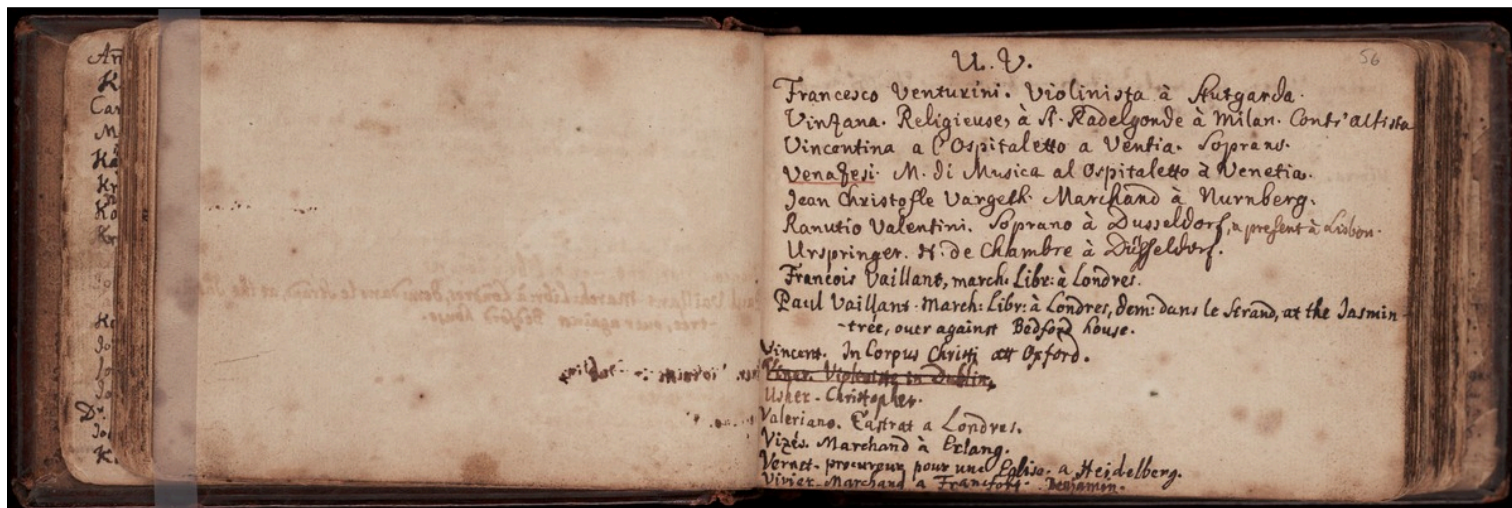 An
K
Car
M
K
Kr
Ko
Kr
Dr.
K
U. V.
56
Francesco Venturini. Violinista à Stutgarda.
Vinzana. Religieuse, à St. Radelgonde à Milan. Contr'altista
Vincentina a l'Ospitaletto a Ventia. Soprano.
Venazesi. M. di Musica al Ospitaletto à Venetia.
Jean Christofle Vargeth. Marchand à Nurnberg.
Ranutio Valentini. Soprano à Dusseldorf, a present à Lisbon.
Urspringer. de Chambre à Düsseldorf.
François Vaillant, march: Libr: à Londres.
Paul Vaillant. March: Libr: à Londres, dem: dans le Strand, at the Jasmin-
-tree, over against Bedford house.
Vincent. In Corpus Christi att Oxford.
Viner. Violoniste in Dublin,
Usher - Christopher.
Valeriano. Castrat a Londres.
Vizés. Marchand à Erlang.
Vernet - procureur pour une Eglise - a Heidelberg.
Vivier - Marchand a Francfort - Benjamin.